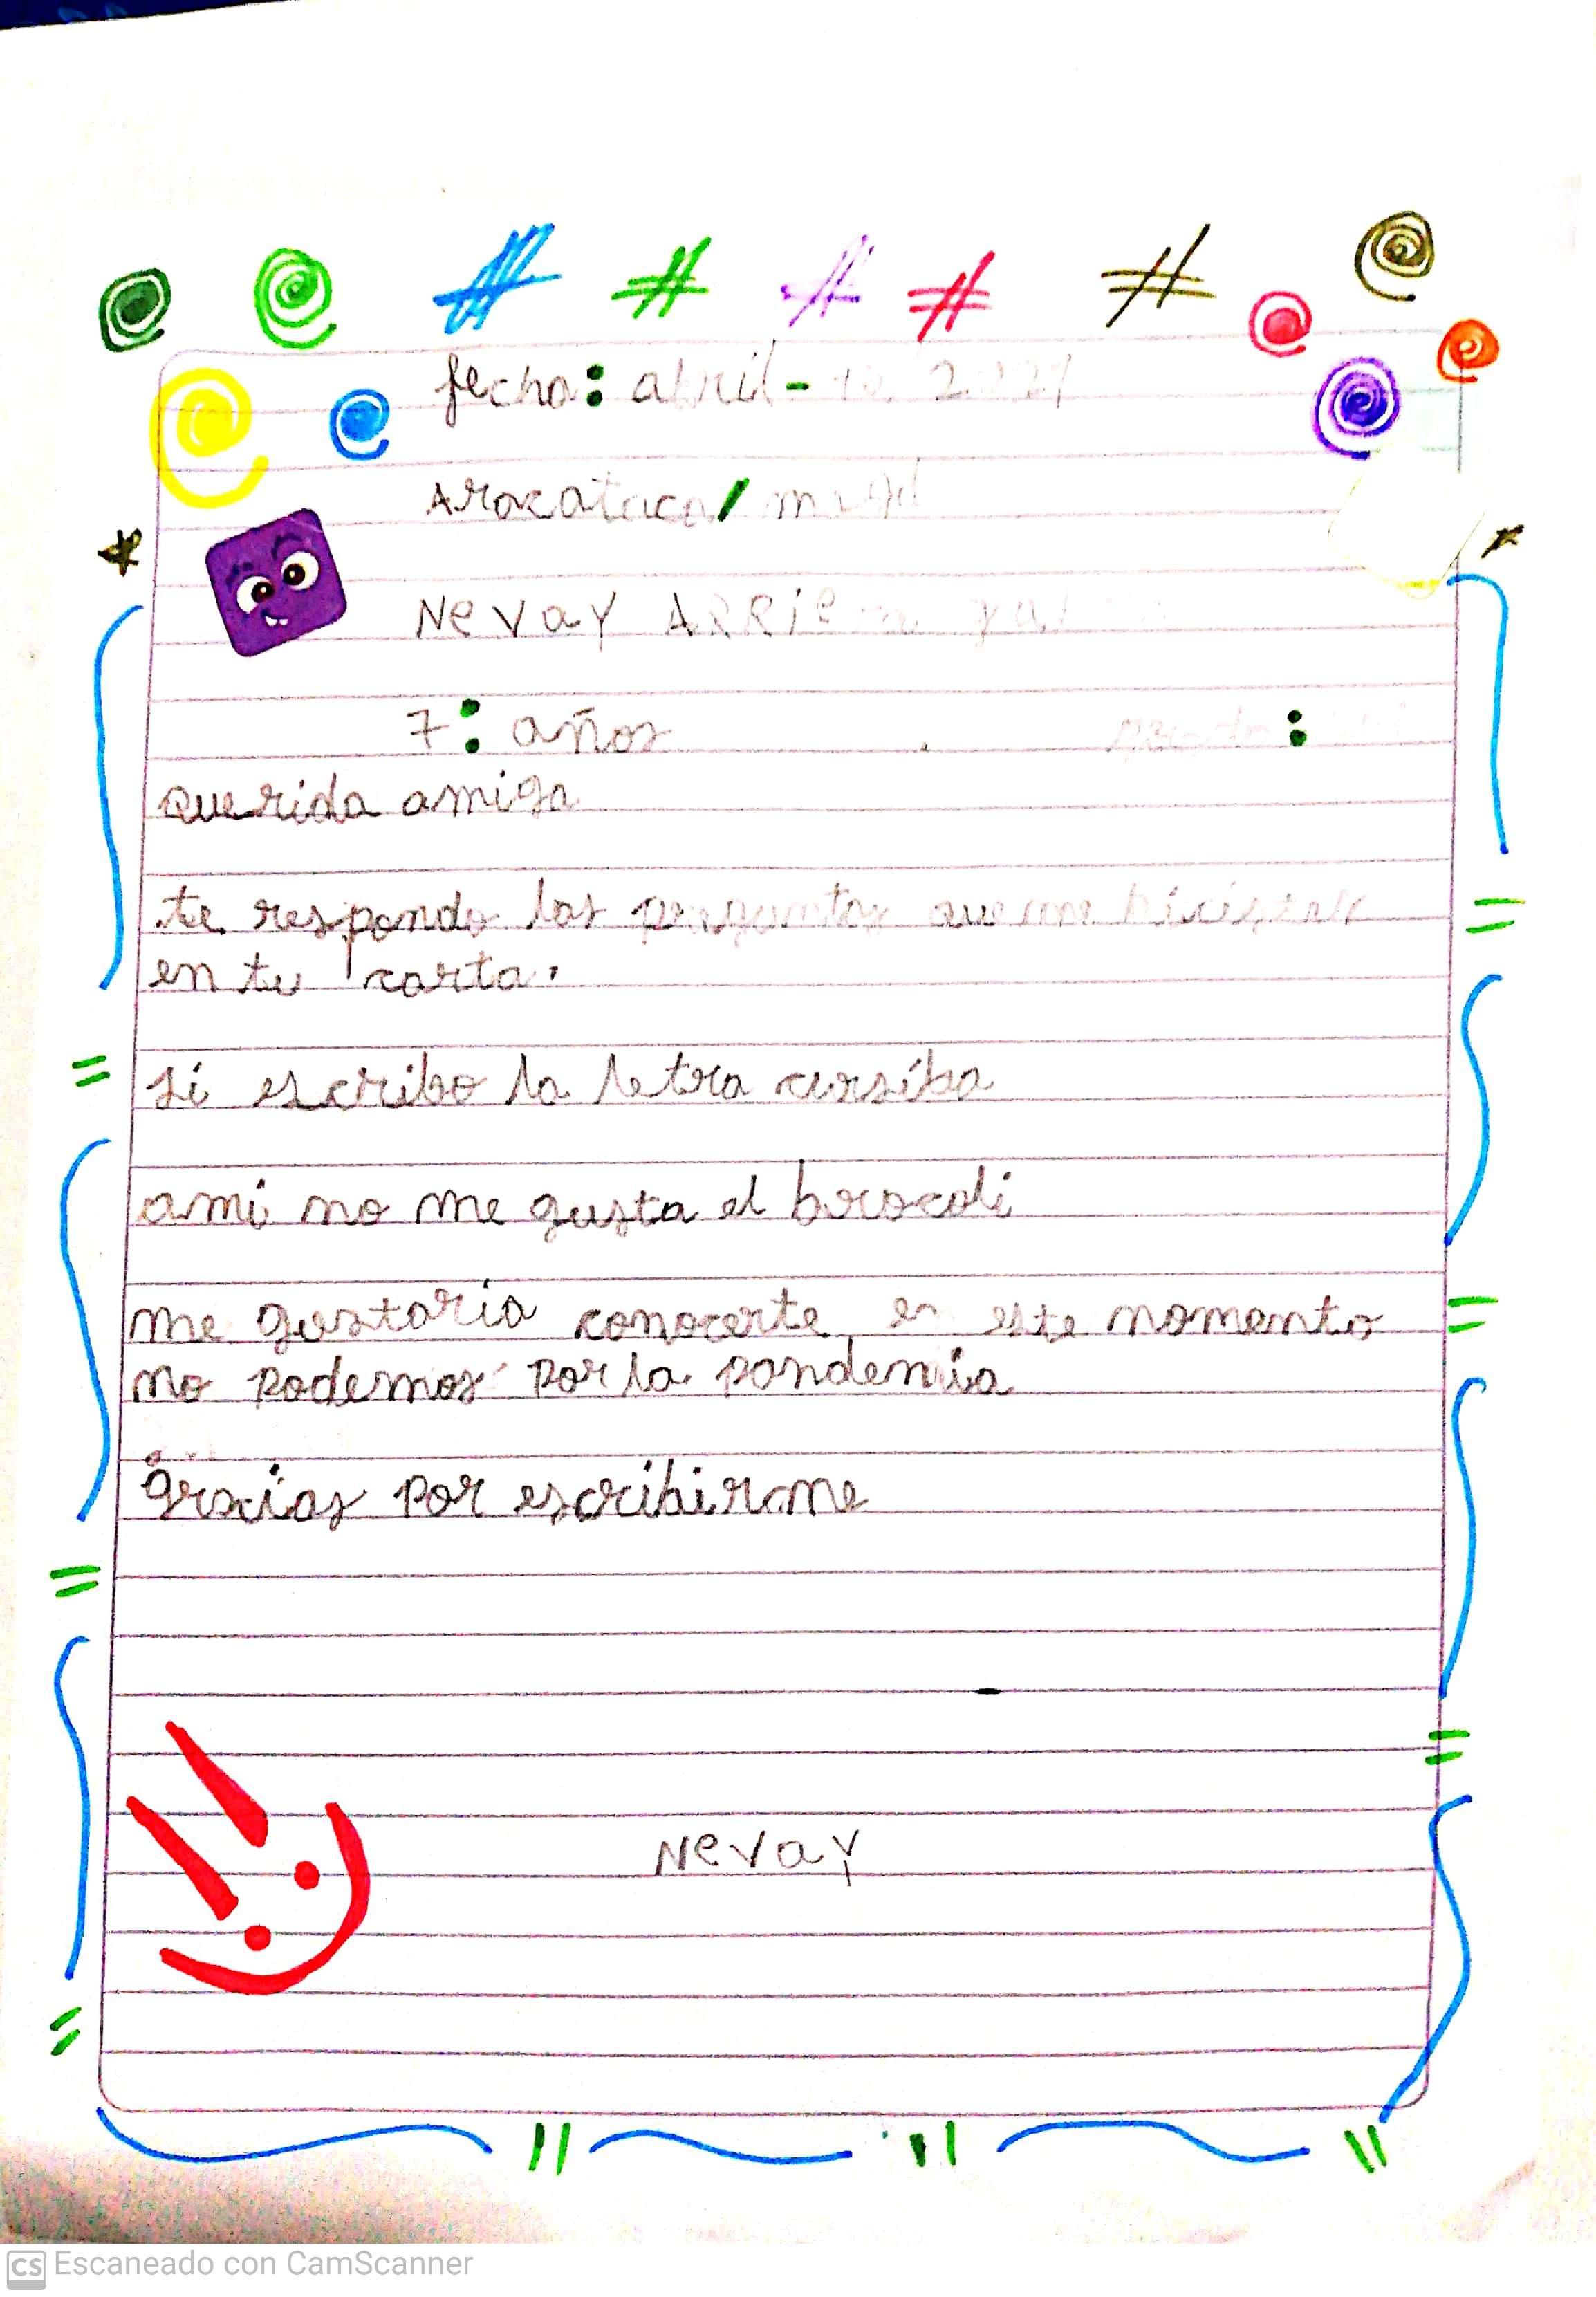 fecha: abril - 2021
Aracataca/ magd
Nevay ARRIeta
7: años
querida amiga
te respondo las preguntas que me hicistes
en tu carta.
si escribo la letra cursiba
ami no me gusta el brocoli
me gustaria conocerte, en este nomento
no podemos por la pandemia
gracias por escribirme
Nevay
CS Escaneado con CamScanner